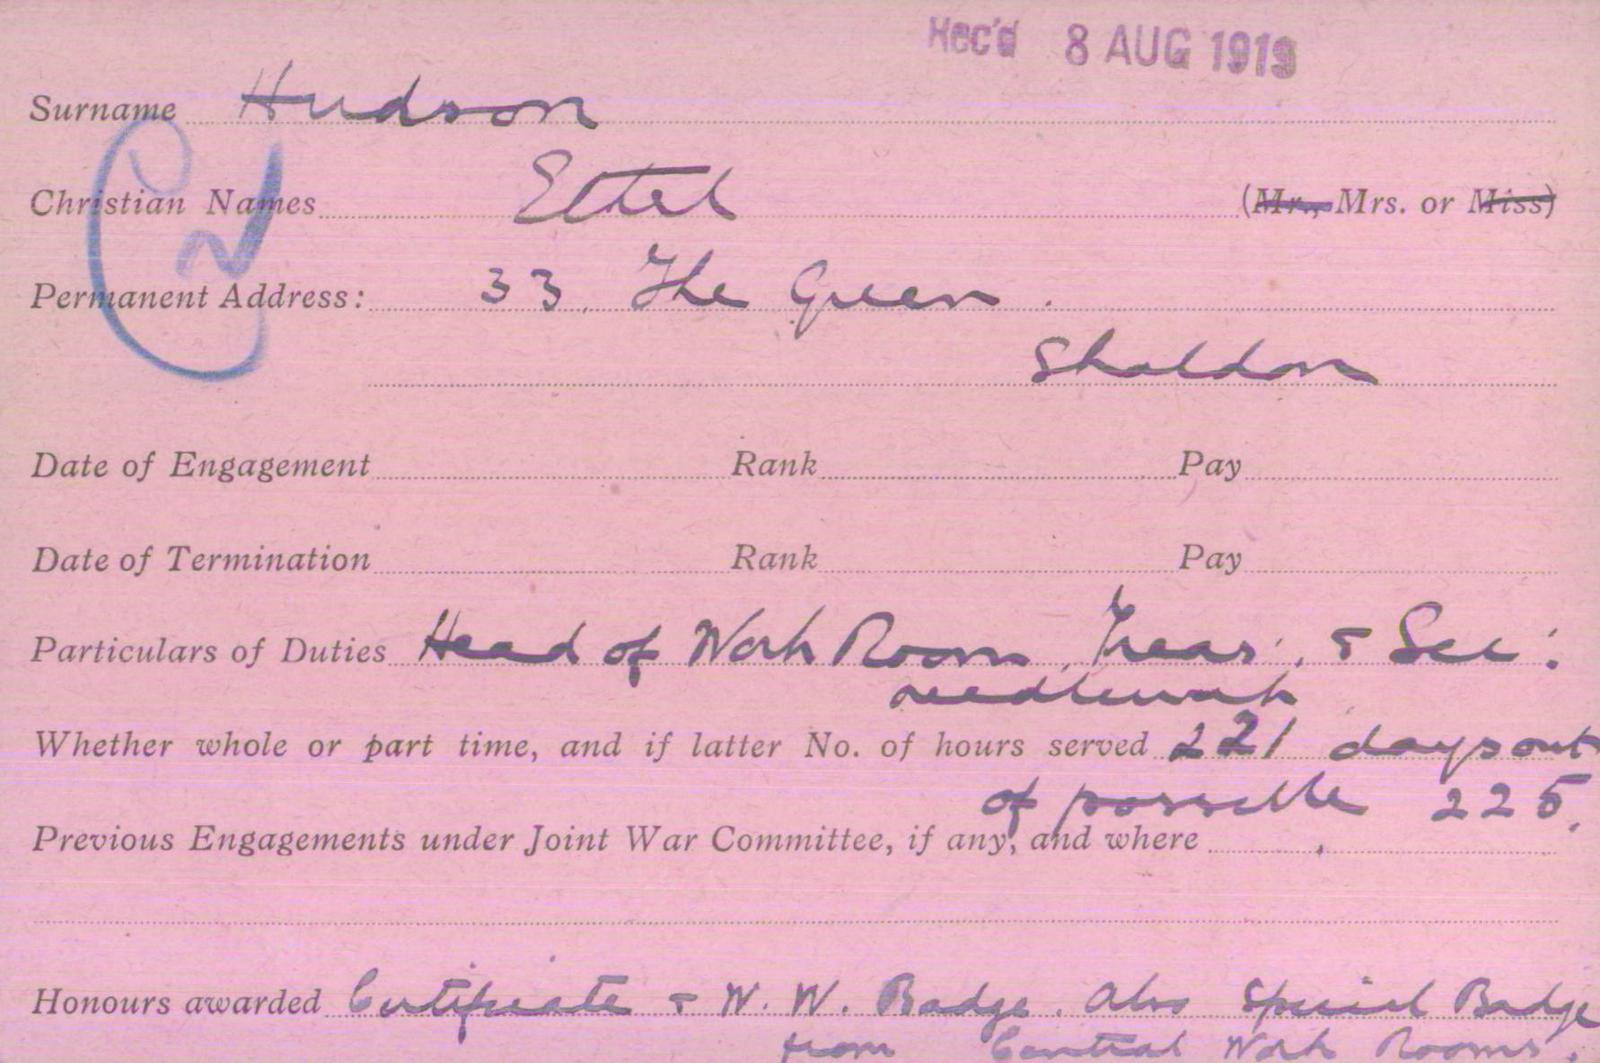 Rec'd 8 AUG 1919
Surname Hudson
Christian Names Ethel (Mr., Mrs. or Miss)
Permanent Address: 33 The Green.
Shaldon
Date of Engagement Rank Pay
Date of Termination Rank Pay
Particulars of Duties Head of Work Room, Treas:, & Sec:
needlework
Whether whole or part time, and if latter No. of hours served 221 days out
of possible 225.
Previous Engagements under Joint War Committee, if any, and where
Honours awarded Certificate & W. W. Badge. Also Special Badge
from Central Work Rooms.